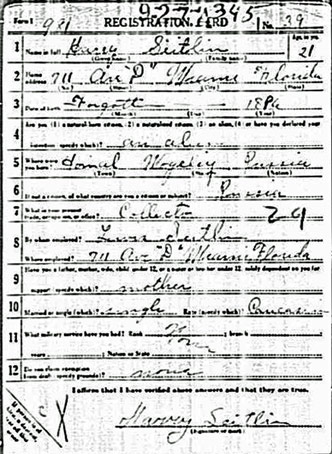 Form 1 9-2-7-1345
REGISTRATION CARD No. 39
1 Name in full Harry Seitlin Age, in yrs. 21
(Given name) (Family name)
2 Home address 711 Ave "D" Miami Florida
(No.) (Street) (City) (State)
3 Date of birth Forgott
(Month) (Day) (Year)
4 Are you (1) a natural born citizen, (2) a naturalized citizen, (3) an alien, (4) or have you declared your
intention (specify which)? an alien
5 Where were you born? Russia
(Town) (State) (Nation)
6 If not a citizen, of what country are you a citizen or subject? Russia
7 What is your present trade, occupation, or office? Collector 29
8 By whom employed? Seitlin
Where employed? 711 Ave "D" Miami Florida
9 Have you a father, mother, wife, child under 12, or a sister or brother under 12, solely dependent on you for
support (specify which)? mother
10 Married or single (which)? single Race (specify which)?
11 What military service have you had? Rank None ; branch
years ; Nation or State
12 Do you claim exemption from draft (specify grounds)? none
I affirm that I have verified above answers and that they are true.
Harvey Seitlin
(Signature or mark)